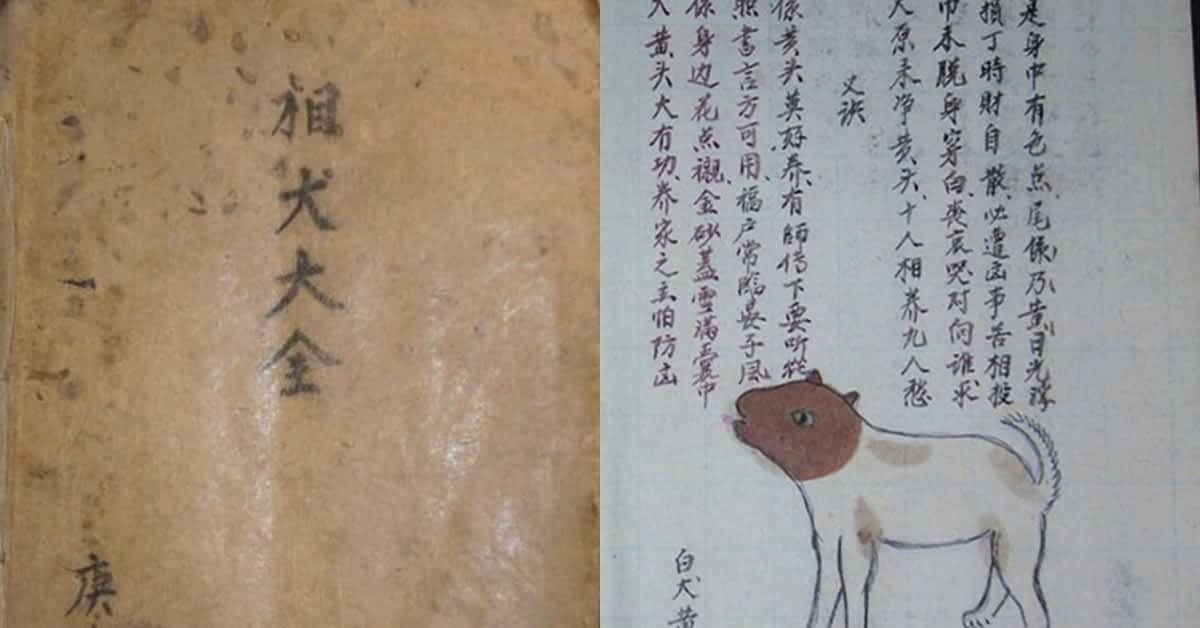 相犬大全
庚
是身中有色点、尾像乃黄目光
損丁時財自散、必遭凶事苦相投
巾未脱身穿白、喪哀哭对向谁求
犬原未净黄头、十人相养九人愁
又诀
像黄头莫好养、有師传下要听從
照書言方可用、福户常臨
係身边花点襯、金砂盖雪满中
人黄头大有功、养家之主怕防凶
白犬黄